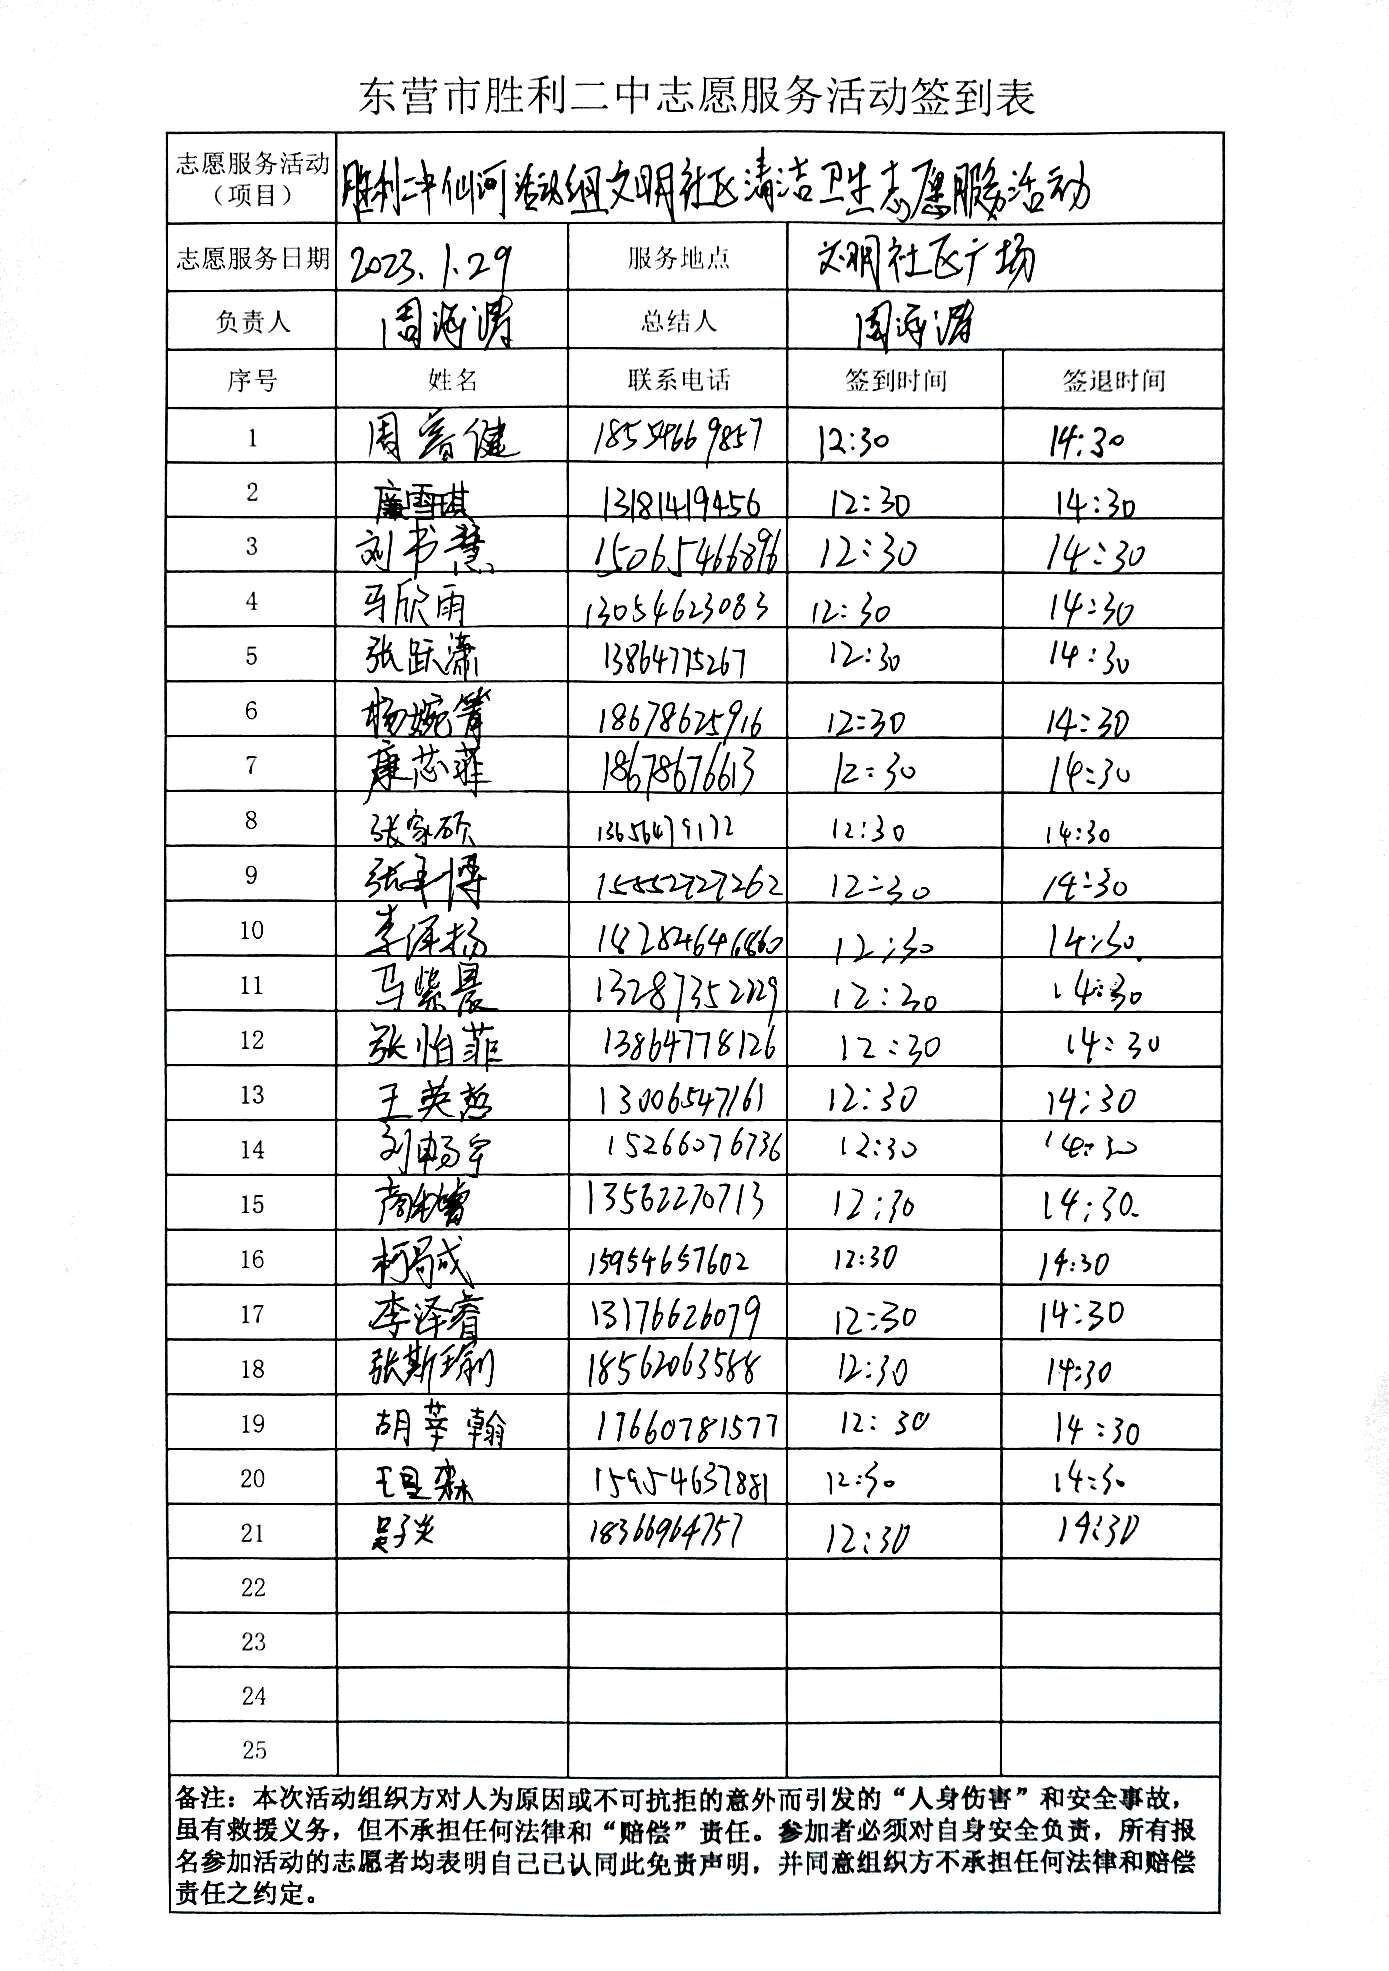 东营市胜利二中志愿服务活动签到表
志愿服务活动（项目） 胜利二中仙河活动组文明社区清洁卫生志愿服务活动
志愿服务日期 2023.1.29 服务地点 文明社区广场
负责人 周海涛 总结人 周海涛
序号 姓名 联系电话 签到时间 签退时间
1 周睿健 18554669857 12:30 14:30
2 廉雪琪 13181419456 12:30 14:30
3 刘书慧 15065466896 12:30 14:30
4 马欣雨 13054623083 12:30 14:30
5 张跃潇 13864775267 12:30 14:30
6 杨婉箐 18678625916 12:30 14:30
7 康芯菲 18678676613 12:30 14:30
8 张家硕 13656479172 12:30 14:30
9 15552727262 12:30 14:30
10 李泽扬 12:30 14:30.
11 马紫晨 12:30 14:30
12 张怡菲 13864778126 12:30 14:30
13 王英哲 13006547161 12:30 14:30
14 刘畅宇 15266076736 12:30 14:30
15 13562270713 12:30 14:30.
16 15954657602 12:30 14:30
17 李泽睿 13176626079 12:30 14:30
18 张斯瑜 18562063588 12:30 14:30
19 胡莘翰 17660781577 12:30 14:30
20 15954637881 12:30 14:30
21 吴子炎 18366964757 12:30 14:30
22
23
24
25
备注：本次活动组织方对人为原因或不可抗拒的意外而引发的“人身伤害”和安全事故，
虽有救援义务，但不承担任何法律和“赔偿”责任。参加者必须对自身安全负责，所有报
名参加活动的志愿者均表明自己已认同此免责声明，并同意组织方不承担任何法律和赔偿
责任之约定。